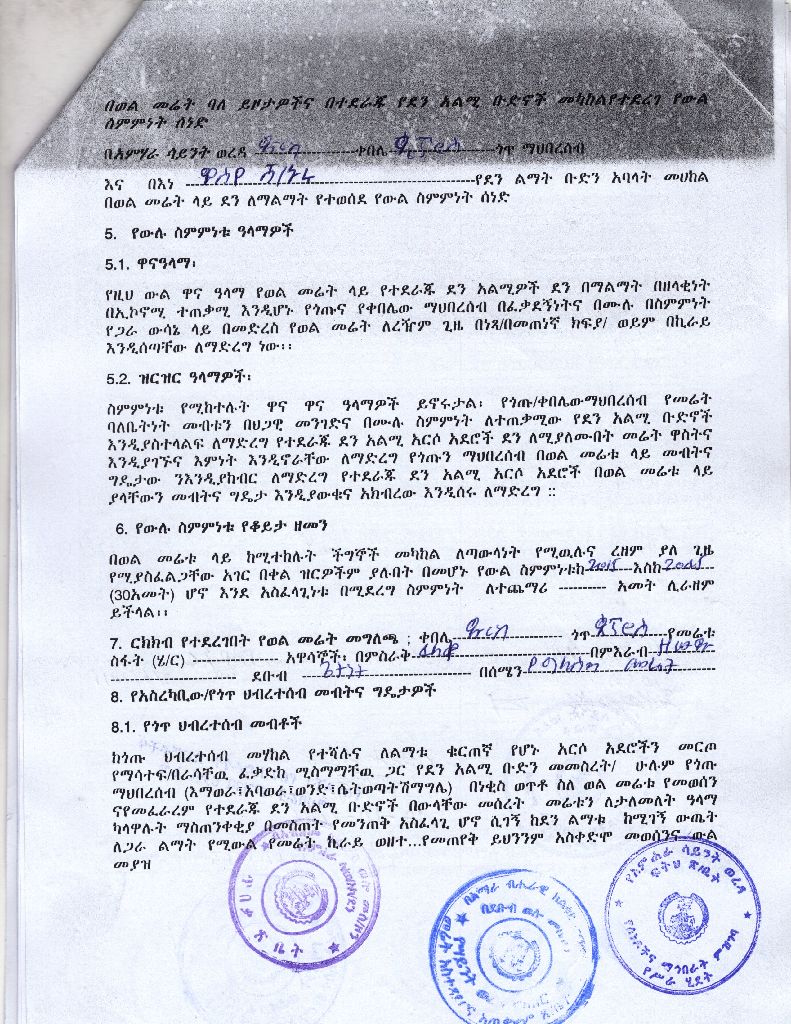 በወል መሬት ባለ ይዞታዎችና በተደራጁ የደን አልሚ ቡድኖች መካከልየተደረገ የውል
ስምምነት ሰነድ
በአምሃራ ሳይንት ወረዳ ----------ቀበሌ ----------ጎጥ ማህበረሰብ
እና በእነ ----------የደን ልማት ቡድን አባላት መሀከል
በወል መሬት ላይ ደን ለማልማት የተወሰደ የውል ስምምነት ሰነድ
5. የውሉ ስምምነቱ ዓላማዎች
5.1. ዋናዓላማ፡
የዚህ ውል ዋና ዓላማ የወል መሬት ላይ የተደራጁ ደን አልሚዎች ደን በማልማት በዘላቂነት
በኢኮኖሚ ተጠቃሚ እንዲሆኑ የጎጡና የቀበሌው ማህበረሰብ በፈቃደኝነትና በሙሉ በስምምነት
የጋራ ውሳኔ ላይ በመድረስ የወል መሬት ለረዥም ጊዜ በነጻ/በመጠነኛ ክፍያ/ ወይም በኪራይ
እንዲሰጣቸው ለማድረግ ነው፡፡
5.2. ዝርዝር ዓላማዎች፡
ስምምነቱ የሚከተሉት ዋና ዋና ዓላማዎች ይኖሩታል፡ የጎጡ/ቀበሌውማህበረሰብ የመሬት
ባለቤትነት መብቱን በህጋዊ መንገድና በሙሉ ስምምነት ለተጠቃሚው የደን አልሚ ቡድኖች
እንዲያስተላልፍ ለማድረግ የተደራጁ ደን አልሚ አርሶ አደሮች ደን ለሚያለሙበት መሬት ዋስትና
እንዲያገኙና እምነት እንዲኖራቸው ለማድረግ የጎጡን ማህበረሰብ በወል መሬቱ ላይ መብትና
ግዴታው ንእንዲያከብር ለማድረግ የተደራጁ ደን አልሚ አርሶ አደሮች በወል መሬቱ ላይ
ያላቸውን መብትና ግዴታ እንዲያውቁና አክብረው እንዲሰሩ ለማድረግ ::
6. የውሉ ስምምነቱ የቆይታ ዘመን
በወል መሬቱ ላይ ከሚተከሉት ችግኞች መካከል ለጣውላነት የሚዉሉና ረዘም ያለ ጊዜ
የሚያስፈልጋቸው አገር በቀል ዝርዎችም ያሉበት በመሆኑ የውል ስምምነቱከ---------እስከ---------
(30አመት) ሆኖ እንደ አስፈላጊነቱ በሚደረግ ስምምነት ለተጨማሪ ---------- አመት ሊራዘም
ይችላል፡፡
7. ርክክብ የተደረገበት የወል መሬት መግለጫ ; ቀበሌ---------- ጎጥ----------የመሬቱ
ስፋት (ሄ/ር) ---------- አዋሳኞች፡ በምስራቅ----------በምእራብ----------
---------- ደቡብ ---------- በሰሜን----------
8. የአስረካቢው/የጎጥ ህብረተሰብ መብትና ግዴታዎች
8.1. የጎጥ ህብረተሰብ መብቶች
ከጎጡ ህብረተሰብ መሃከል የተሻሉና ለልማቱ ቁርጠኛ የሆኑ አርሶ አደሮችን መርጦ
የማሳተፍ/በራሳቸዉ ፈቃድከ ሚስማማቸዉ ጋር የደን አልሚ ቡድን መመስረት/ ሁሉም የጎጡ
ማህበረሰብ (እማወራ፣አባወራ፣ወንድ፣ሴትወጣትሽማግሌ) በነቂስ ወጥቶ ስለ ወል መሬቱ የመወሰን
ናየመፈራረም የተደራጁ ደን አልሚ ቡድኖች በውላቸው መሰረት መሬቱን ለታለመለት ዓላማ
ካላዋሉት ማስጠንቀቂያ በመስጠት የመንጠቅ አስፈላጊ ሆኖ ሲገኝ ከደን ልማቱ ከሚገኝ ውጤት
ለጋራ ልማት የሚውል የመሬት ኪራይ ወዘተ...የመጠየቅ ይህንንም አስቀድሞ መወሰንና ውል
መያዝ
የአምሐራ ሳይንት ወረዳ
ፍትህ ጽ/ቤት